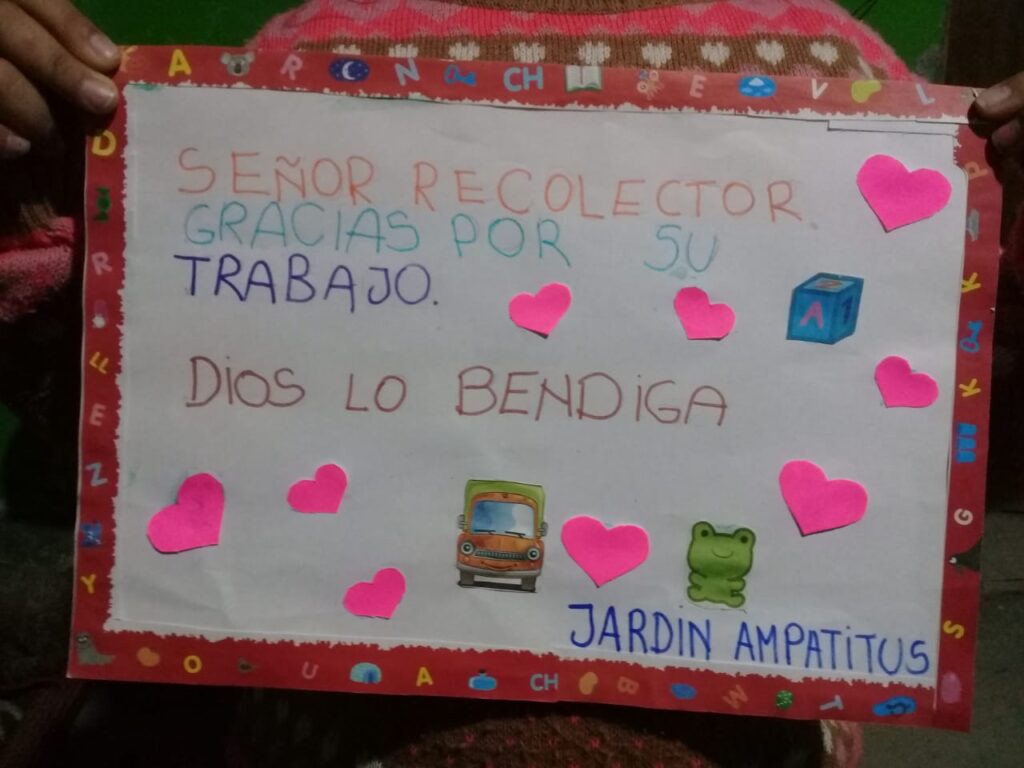 A R N CH E V L
SEÑOR RECOLECTOR.
GRACIAS POR SU
TRABAJO.
DIOS LO BENDIGA
JARDIN AMPATITUS
A
D
R
F
E
Z
Y
K
K
G
S
O U A CH B M T